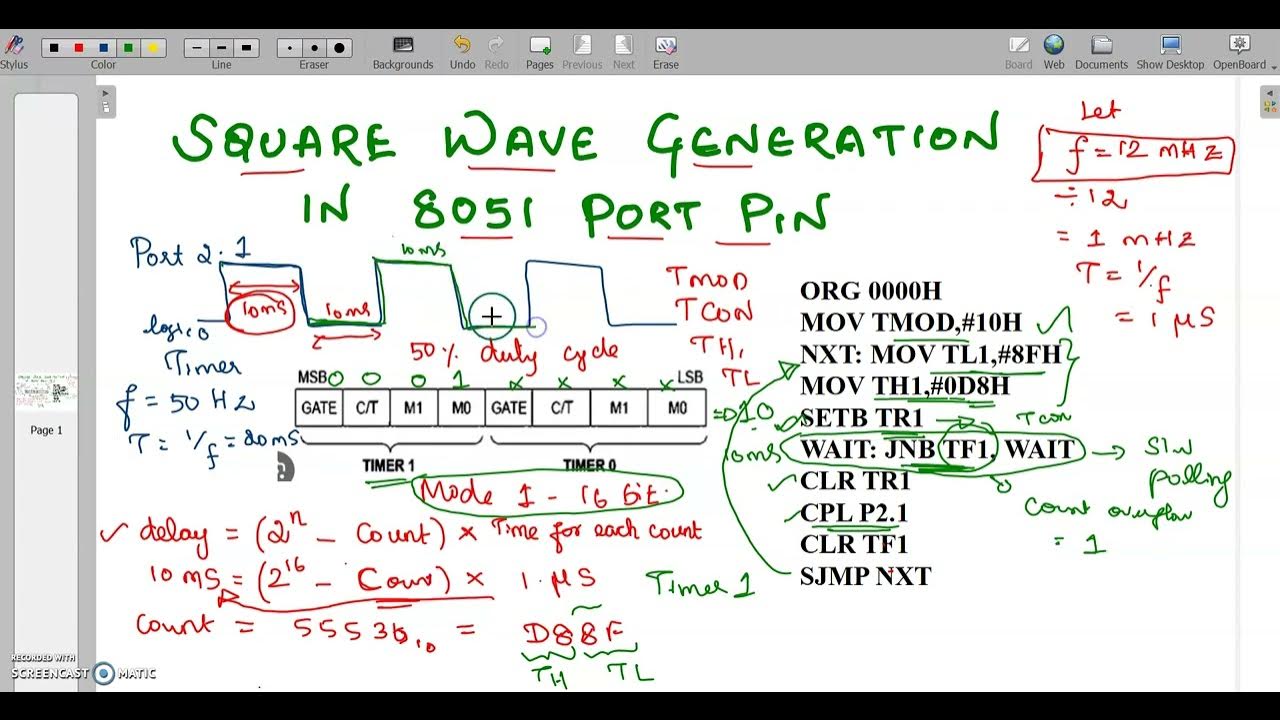 Stylus
Color
Line
Eraser
Backgrounds
Undo
Redo
Pages
Previous
Next
Erase
Board
Web
Documents
Show Desktop
OpenBoard
Page 1
SQUARE WAVE GENERATION
IN 8051 PORT PIN
Let
f = 12 MHZ
÷ 12
= 1 MHZ
T = 1/f
= 1 μS
Port 2.1
10ms
10ms
10ms
logic 0
50% duty cycle
Timer
f = 50 HZ
T = 1/f = 20ms
TMOD
TCON
TH,
TL
MSB 0 0 0 1 x x x x LSB
GATE C/T M1 M0 GATE C/T M1 M0
=> 10
TIMER 1 TIMER 0
Mode 1 - 16 bit.
delay = (2^n - Count) × Time for each count
10 mS = (2^16 - Count) × 1. μS
Count = 55536₁₀ = D88F
TH TL
Timer 1
ORG 0000H
MOV TMOD,#10H
NXT: MOV TL1,#8FH
MOV TH1,#0D8H
SETB TR1
TCON
10ms
WAIT: JNB TF1, WAIT
S/W
polling
CLR TR1
CPL P2.1
CLR TF1
SJMP NXT
Count overflow
= 1
RECORDED WITH
SCREENCAST MATIC